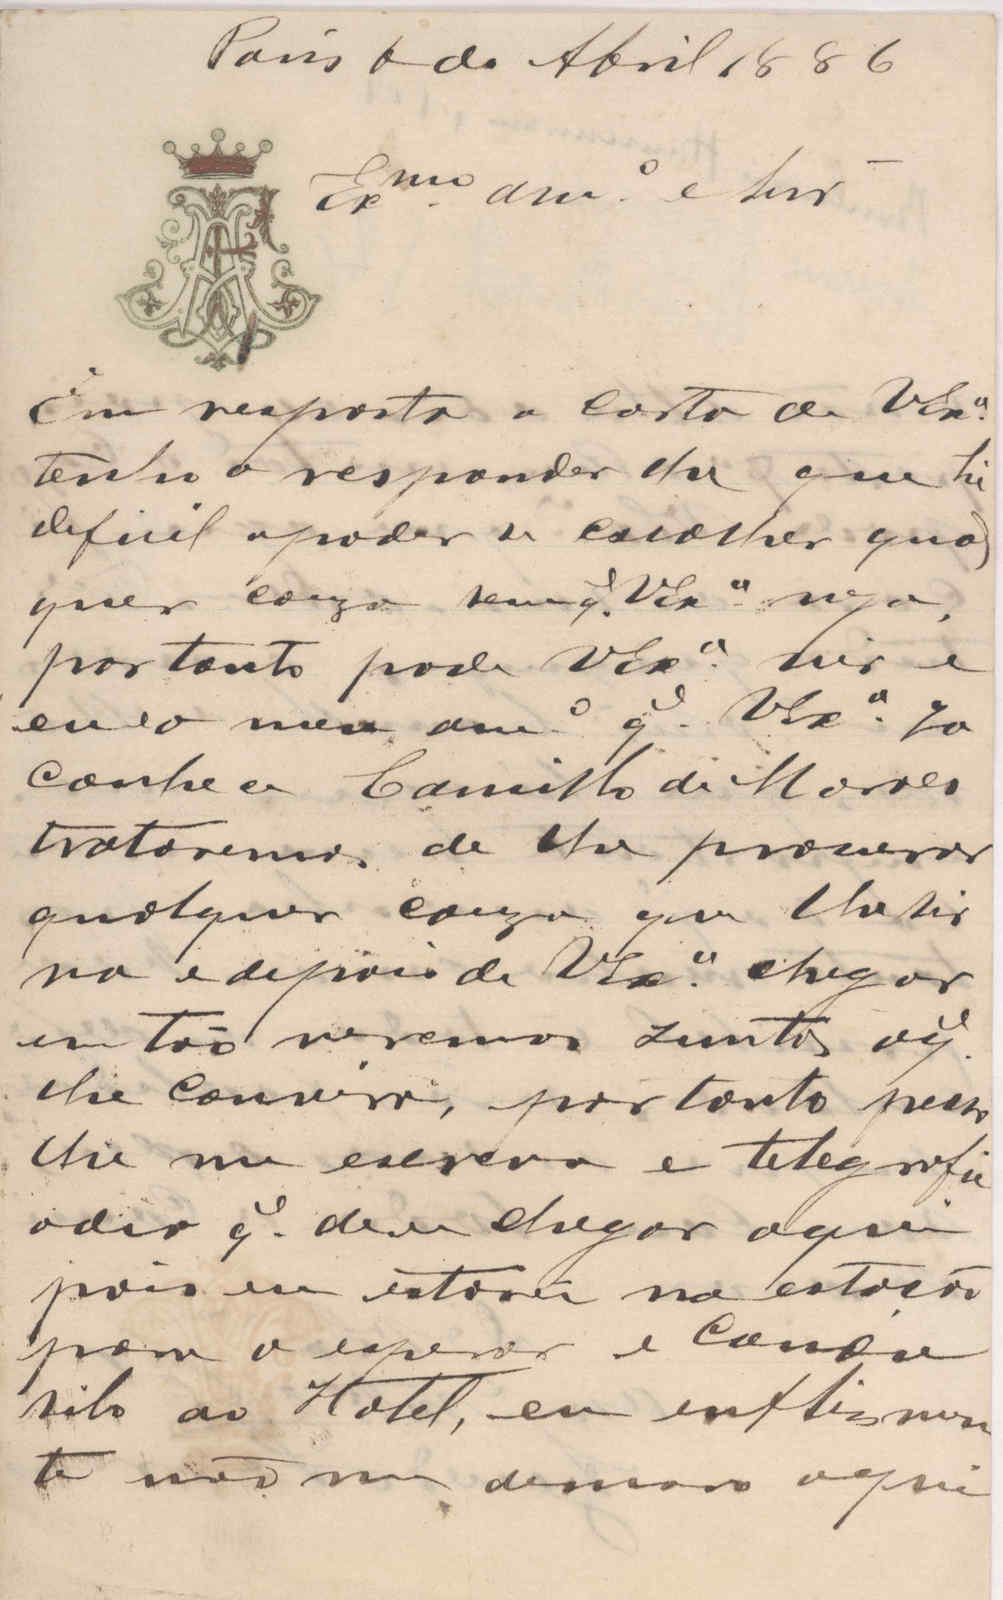 Paris 6 de Abril 1886
Exmo. amo. e Snr
Em resposta a carta de VExa.
tenho a responder lhe que hé
deficil apoder se escolher qual
quer couza sem q. VExa. veja,
portanto pode VExa. vir e
eu e o meu amo. q. VExa. ja
conhece Camillo de Moraes
trataremos de lhe procurar
qualquer couza que lhe sir
va e depois de VExa. chegar
então veremos juntos oq.
lhe convirá, portanto pesso
lhe me escreva e telegrafie
odia q. deve chegar aqui
pois eu estarei na estacão
para o esperar e Condu
silo ao Hotel, eu infelizmen
te não me demoro aqui